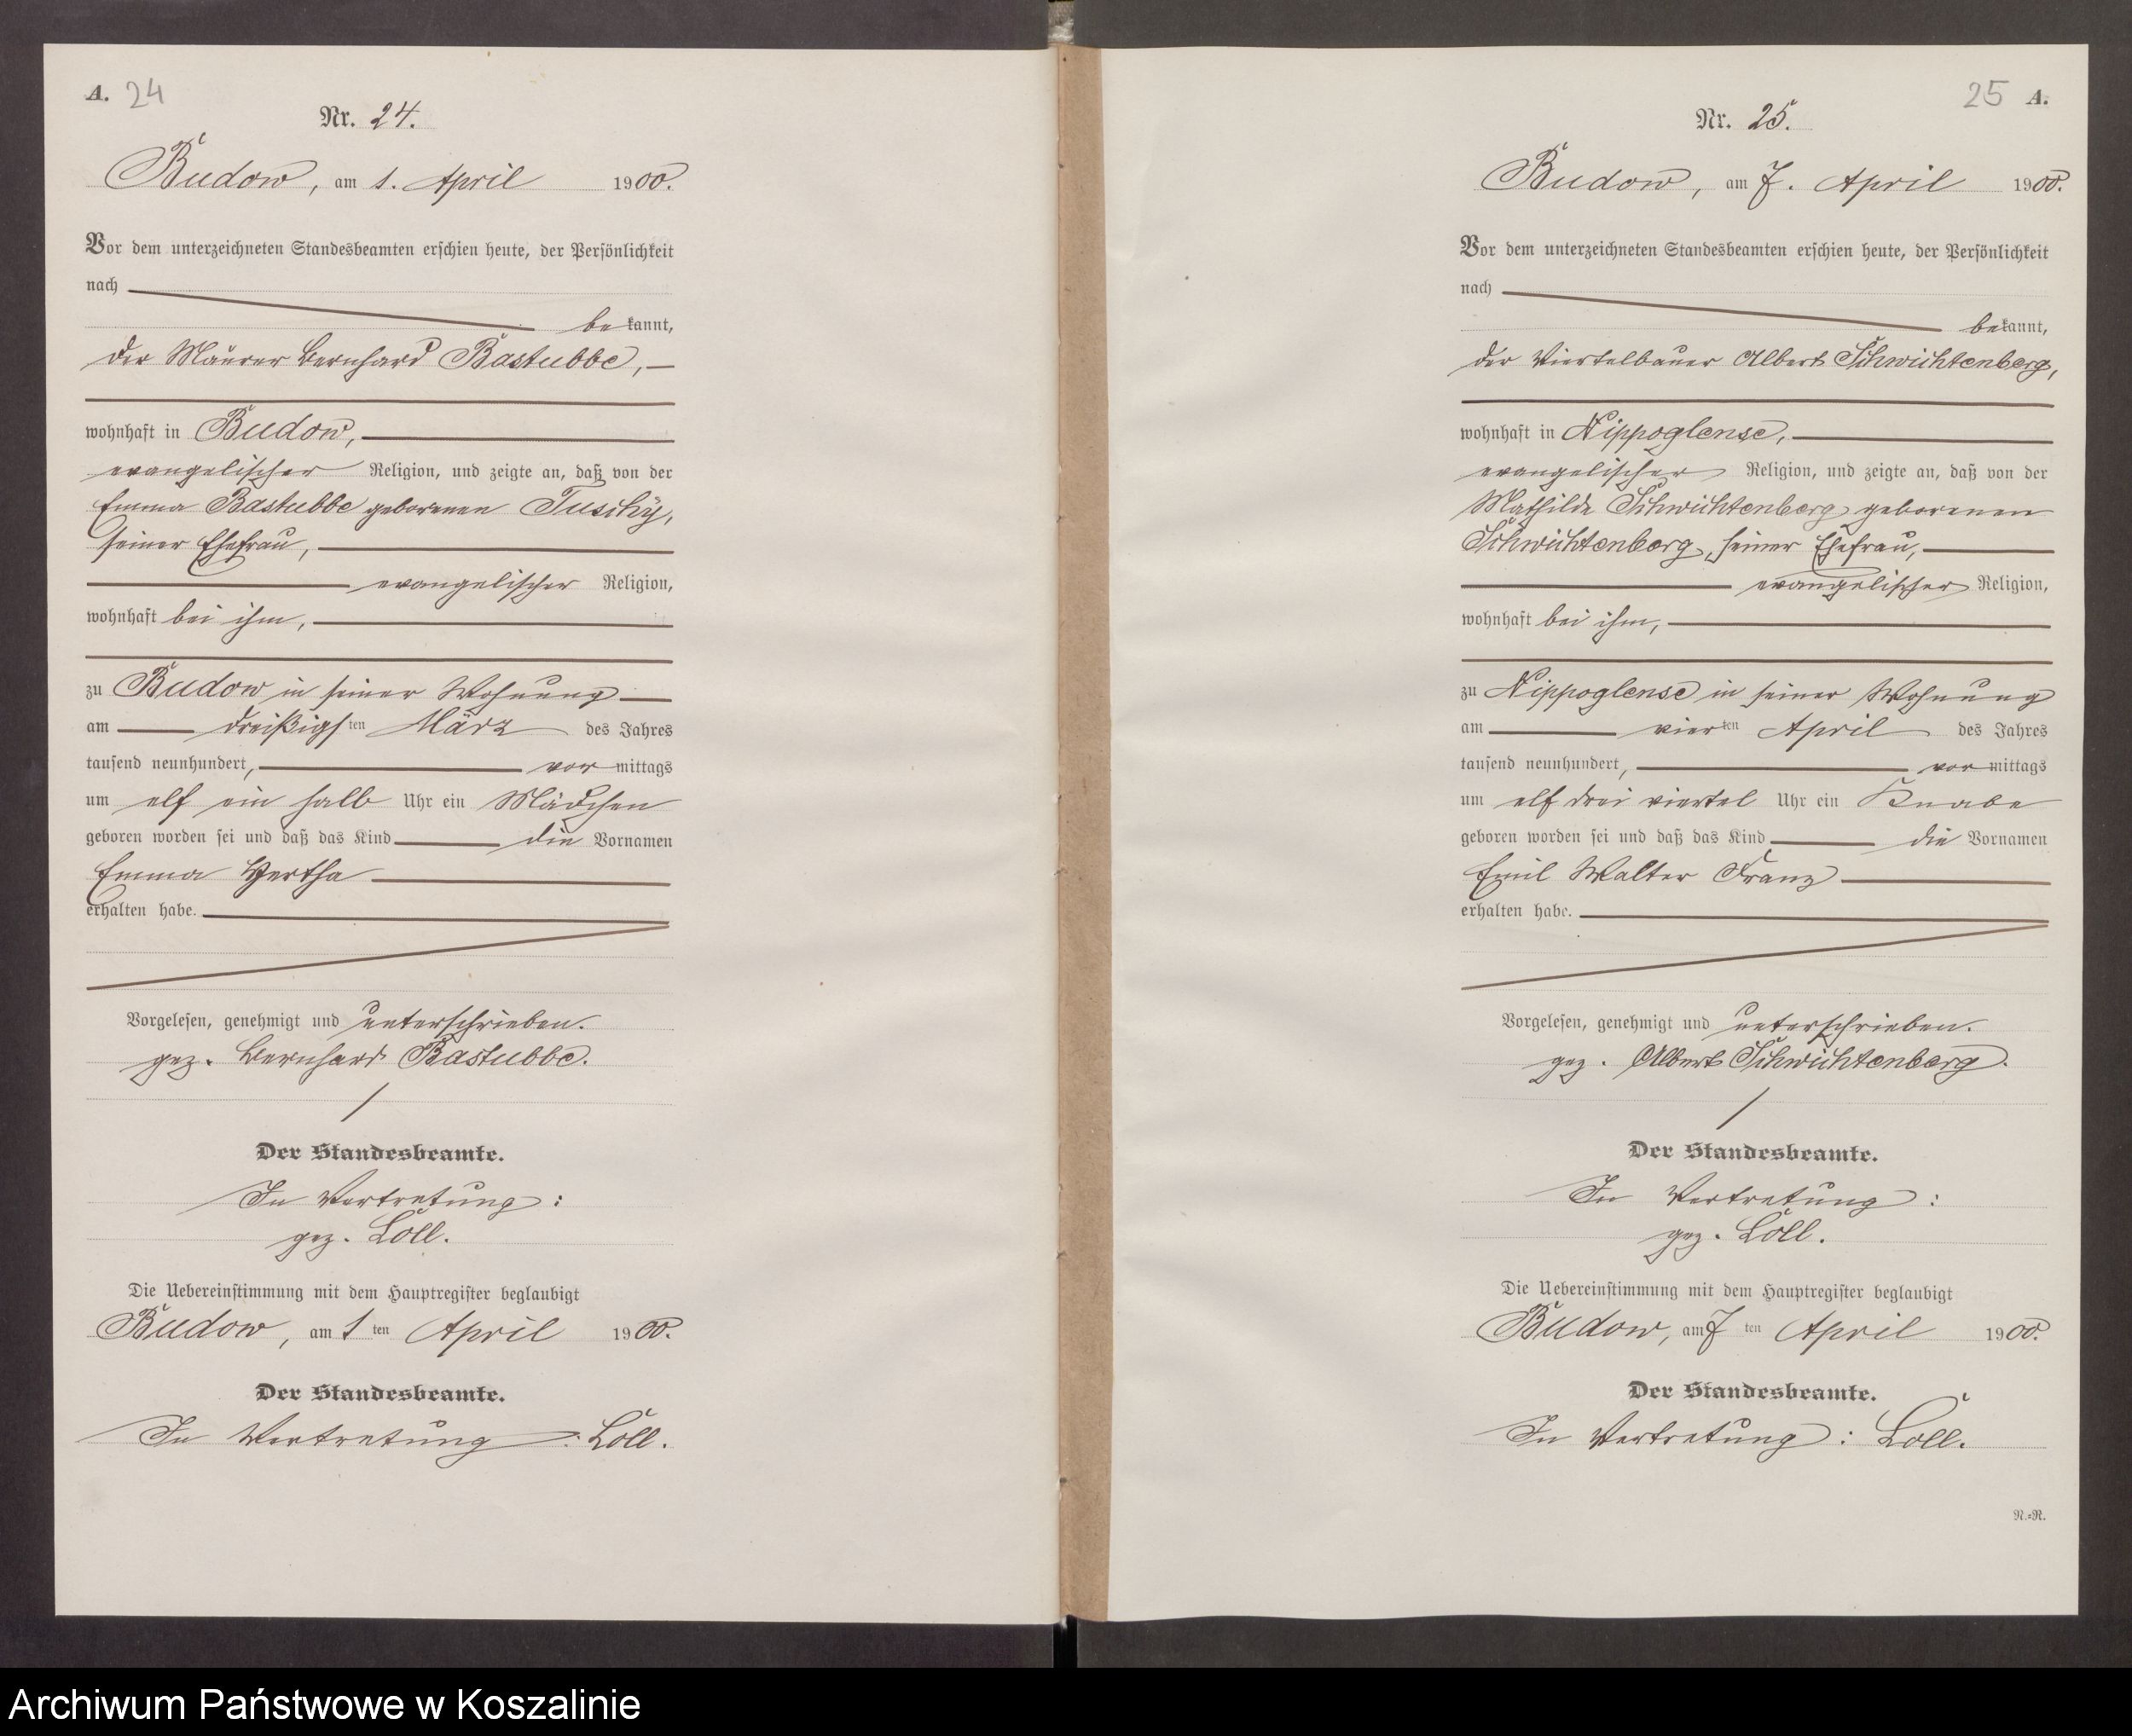 A. 24
Nr. 24.
Budow, am 1. April 1900.
Vor dem unterzeichneten Standesbeamten erschien heute, der Persönlichkeit
nach
bekannt,
der Maurer Bernhard Bastubbe,
wohnhaft in Budow,
evangelischer Religion, und zeigte an, daß von der
Emma Bastubbe geborenen Tuschy,
seiner Ehefrau,
evangelischer Religion,
wohnhaft bei ihm,
zu Budow in seiner Wohnung
am dreißigsten März des Jahres
tausend neunhundert, vormittags
um elf ein halb Uhr ein Mädchen
geboren worden sei und daß das Kind die Vornamen
Emma Hertha
erhalten habe.
Vorgelesen, genehmigt und unterschrieben.
gez. Bernhard Bastubbe.
Der Standesbeamte.
In Vertretung:
gez. Loll.
Die Uebereinstimmung mit dem Hauptregister beglaubigt
Budow, am 1ten April 1900.
Der Standesbeamte.
In Vertretung: Loll.
25 A.
Nr. 25.
Budow, am 7. April 1900.
Vor dem unterzeichneten Standesbeamten erschien heute, der Persönlichkeit
nach
bekannt,
der Viertelbauer Albert Schwichtenberg,
wohnhaft in Nippoglense,
evangelischer Religion, und zeigte an, daß von der
Mathilde Schwichtenberg geborenen
Schwichtenberg, seiner Ehefrau,
evangelischer Religion,
wohnhaft bei ihm,
zu Nippoglense in seiner Wohnung
am vierten April des Jahres
tausend neunhundert, vormittags
um elf drei viertel Uhr ein Knabe
geboren worden sei und daß das Kind die Vornamen
Emil Walter Franz
erhalten habe.
Vorgelesen, genehmigt und unterschrieben.
gez. Albert Schwichtenberg.
Der Standesbeamte.
In Vertretung:
gez. Loll.
Die Uebereinstimmung mit dem Hauptregister beglaubigt
Budow, am 7ten April 1900.
Der Standesbeamte.
In Vertretung: Loll.
R.=R.
Archiwum Państwowe w Koszalinie